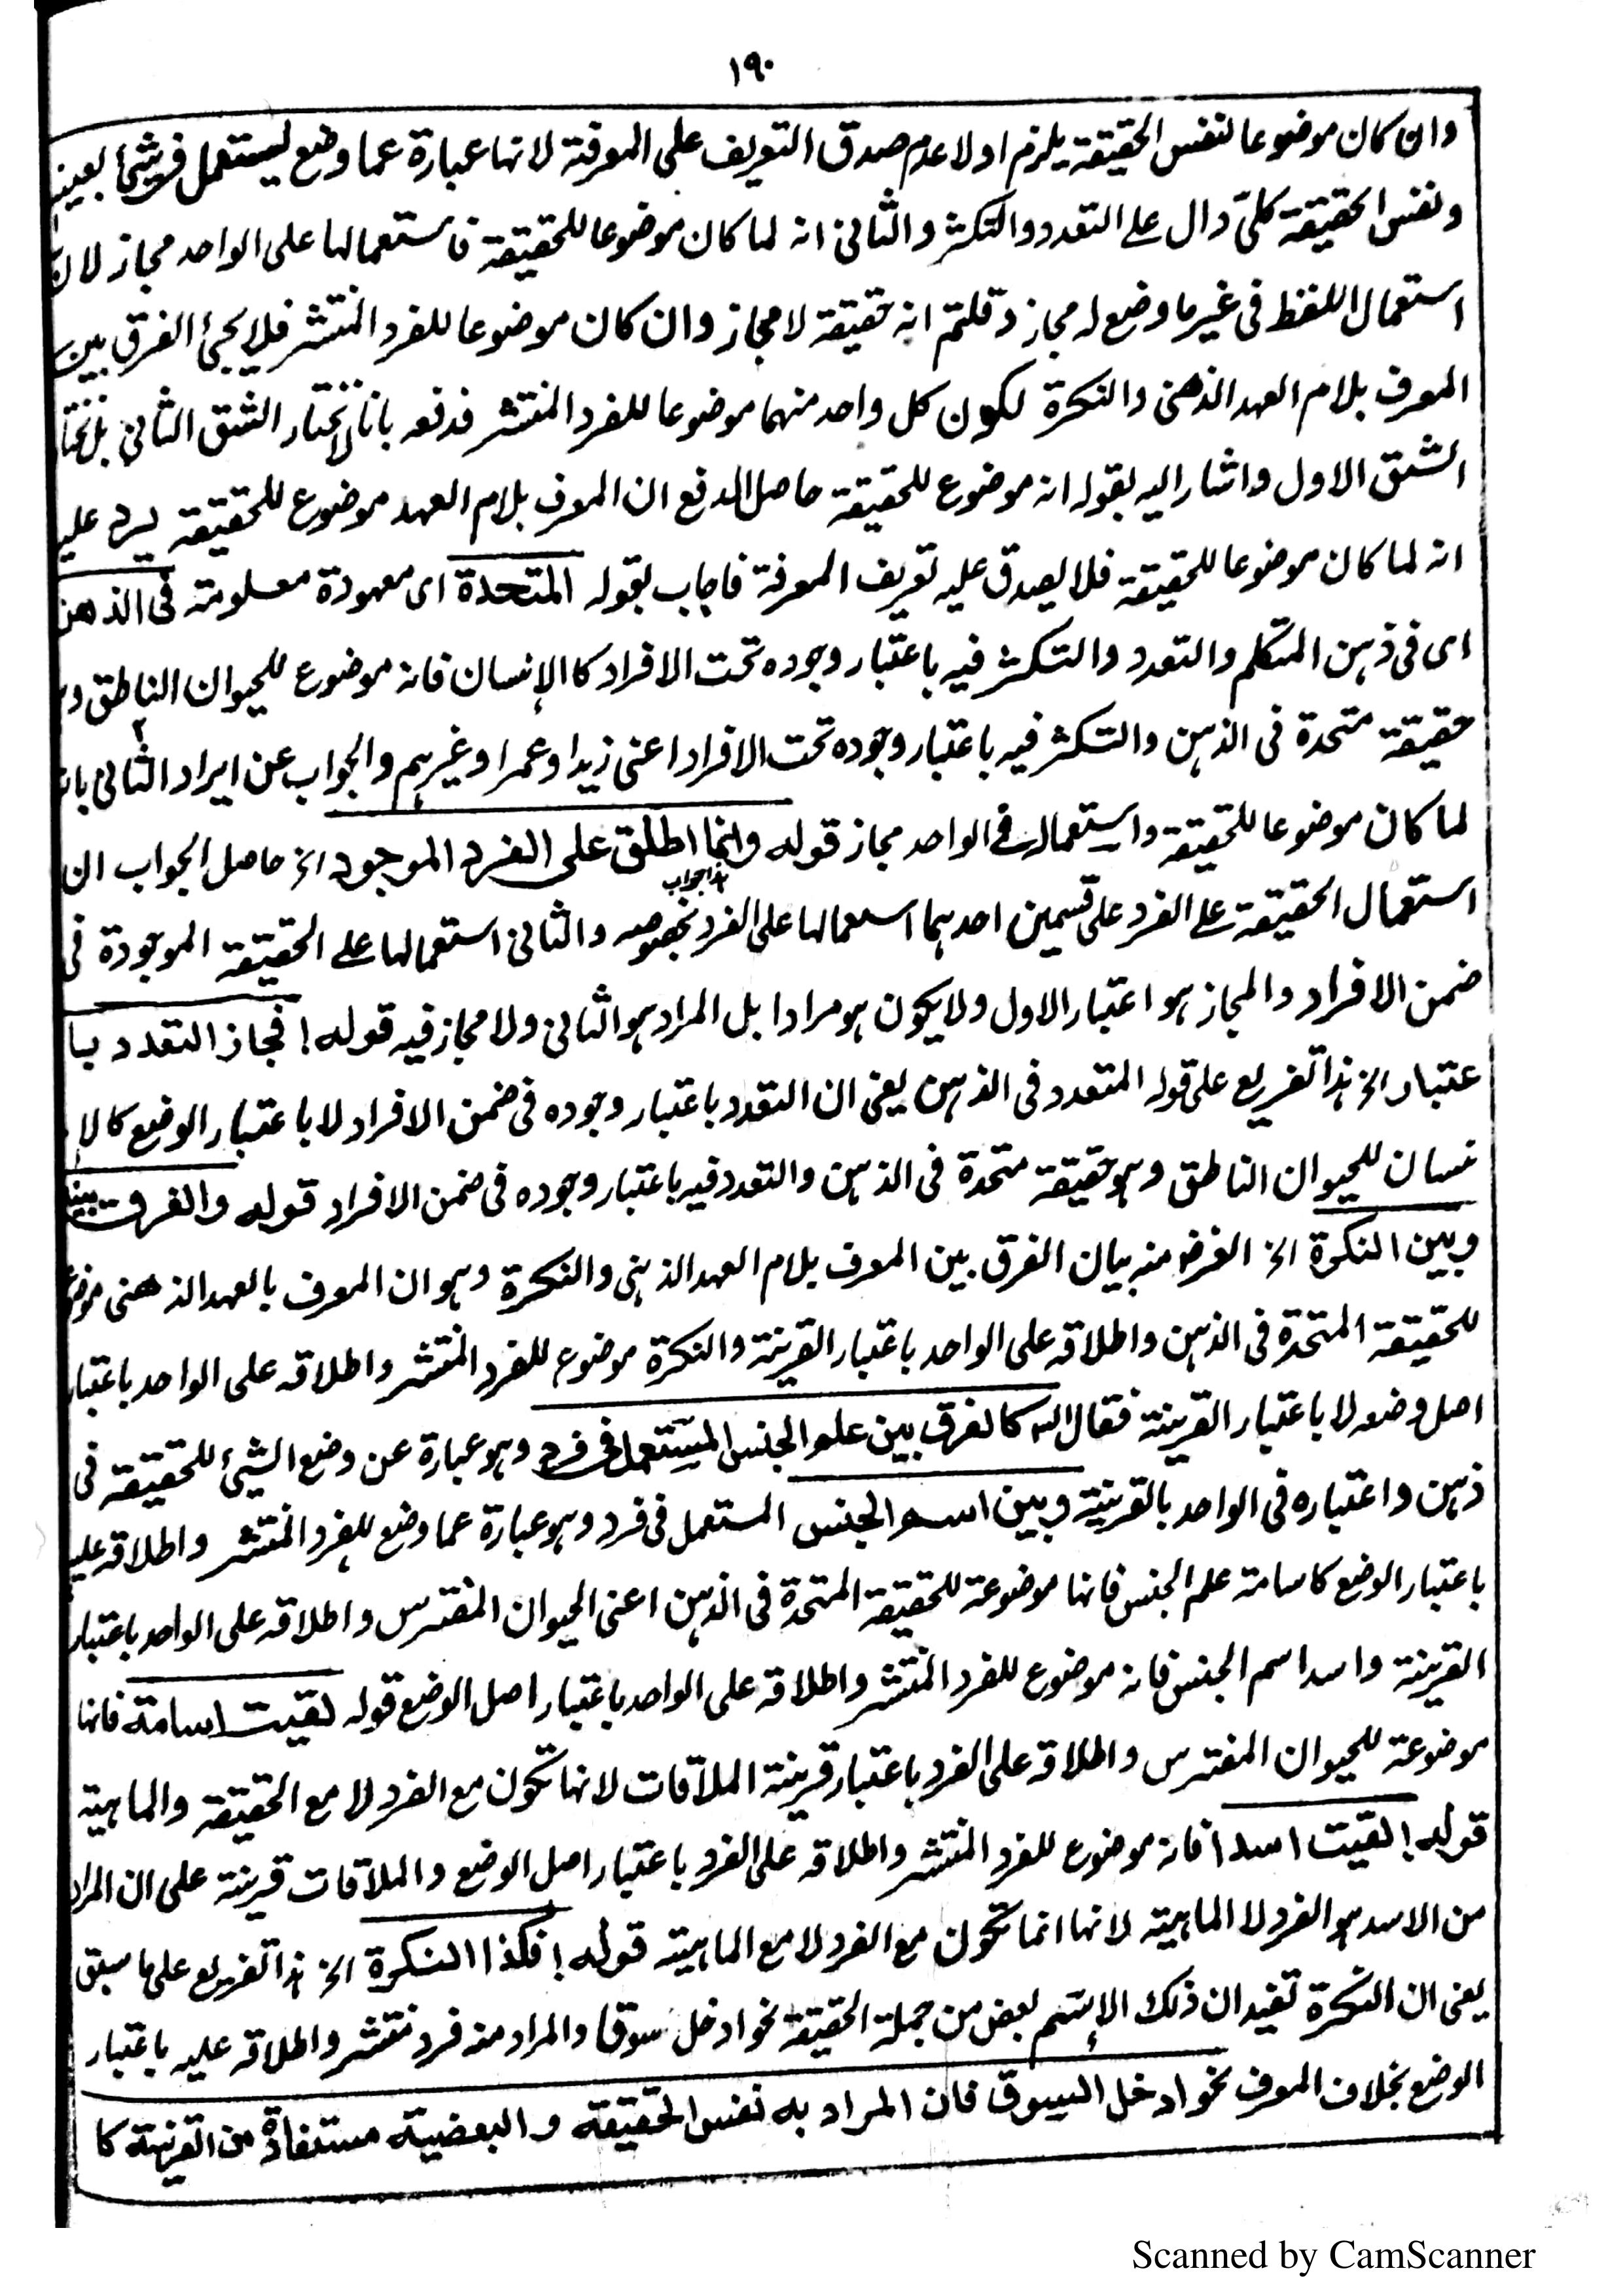 ١٩٠
وان كان موضوعا لنفس الحقيقة يلزم اولا عدم صدق التعريف على المعرفة لانها عبارة عما وضع ليستعمل فى شئ بعينه
ونفس الحقيقة كلىّ دال على التعدد والتكثر والثانى انه لما كان موضوعا للحقيقة فاستعمالها على الواحد مجاز لان
استعمال اللفظ فى غير ما وضع له مجاز وقلتم انه حقيقة لا مجاز وان كان موضوعا للفرد المنتشر فلا يجئ الفرق بين
المعرف بلام العهد الذهنى والنكرة لكون كل واحد منهما موضوعا للفرد المنتشر فدفعه بانا لا نختار الشق الثانى بل نختار
الشق الاول واشار اليه بقوله انه موضوع للحقيقة حاصل الدفع ان المعرف بلام العهد موضوع للحقيقة يرد عليه
انه لما كان موضوعا للحقيقة فلا يصدق عليه تعريف المعرفة فاجاب بقوله المتحدة اى معهودة معلومة فى الذهن
اى فى ذهن المتكلم والتعدد والتكثر فيه باعتبار وجوده تحت الافراد كا الإنسان فانه موضوع للحيوان الناطق
حقيقة متحدة فى الذهن والتكثر فيه باعتبار وجوده تحت الافراد اعنى زيدا وعمرا وغيرهم والجواب عن ايراد الثانى بانه
لما كان موضوعا للحقيقة واستعماله فى الواحد مجاز قوله وانما اطلق على الفرد الموجود الخ حاصل الجواب ان
هذا جواب
استعمال الحقيقة على الفرد على قسمين احدهما استعمالها على الفرد بخصوصه والثانى استعمالها على الحقيقة الموجودة فى
ضمن الافراد والمجاز هو اعتبار الاول ولا يكون هو مرادا بل المراد هو الثانى ولا مجاز فيه قوله ! فجاز التعدد با
عتبار الخ هذا تفريع على قوله المتعدد فى الذهن يعنى ان التعدد باعتبار وجوده فى ضمن الافراد لا باعتبار الوضع كالإ
نسان للحيوان الناطق وهو حقيقة متحدة فى الذهن والتعدد فيه باعتبار وجوده فى ضمن الافراد قوله والفرق بينه
وبين النكرة الخ الغرض منه بيان الفرق بين المعرف بلام العهد الذهنى والنكرة وهو ان المعرف بالعهد الذهنى موضوع
للحقيقة المتحدة فى الذهن واطلاقه على الواحد باعتبار القرينة والنكرة موضوع للفرد المنتشر واطلاقه على الواحد باعتبار
اصل وضعه لا باعتبار القرينة فقال الله كالفرق بين علم الجنس المستعمل فى فرد وهو عبارة عن وضع الشئ للحقيقة فى
ذهن واعتباره فى الواحد بالقرينة وبين اسم الجنس المستعمل فى فرد وهو عبارة عما وضع للفرد المنتشر واطلاقه عليه
باعتبار الوضع كاسامة علم الجنس فانها موضوعة للحقيقة المتحدة فى الذهن اعنى الحيوان المفترس واطلاقه على الواحد باعتبار
القرينة واسد اسم الجنس فانه موضوع للفرد المنتشر واطلاقه على الواحد باعتبار اصل الوضع قوله لقيت اسامة فانها
موضوعة للحيوان المفترس واطلاقه على الفرد باعتبار قرينة الملاقات لانها تكون مع الفرد لا مع الحقيقة والماهية
قوله ! لقيت اسدا فانه موضوع للفرد المنتشر واطلاقه على الفرد باعتبار اصل الوضع والملاقات قرينة على ان المراد
من الاسد هو الفرد لا الماهية لانها انما تكون مع الفرد لا مع الماهية قوله ! فكذا النكرة الخ هذا تفريع على ما سبق
يعنى ان النكرة تفيد ان ذلك الإسم بعض من جملة الحقيقة نحو ادخل سوقا والمراد منه فرد منتشر واطلاقه عليه باعتبار
الوضع بخلاف المعرف نحو ادخل السوق فان المراد به نفس الحقيقة والبعضية مستفادة من القرينة كا
Scanned by CamScanner